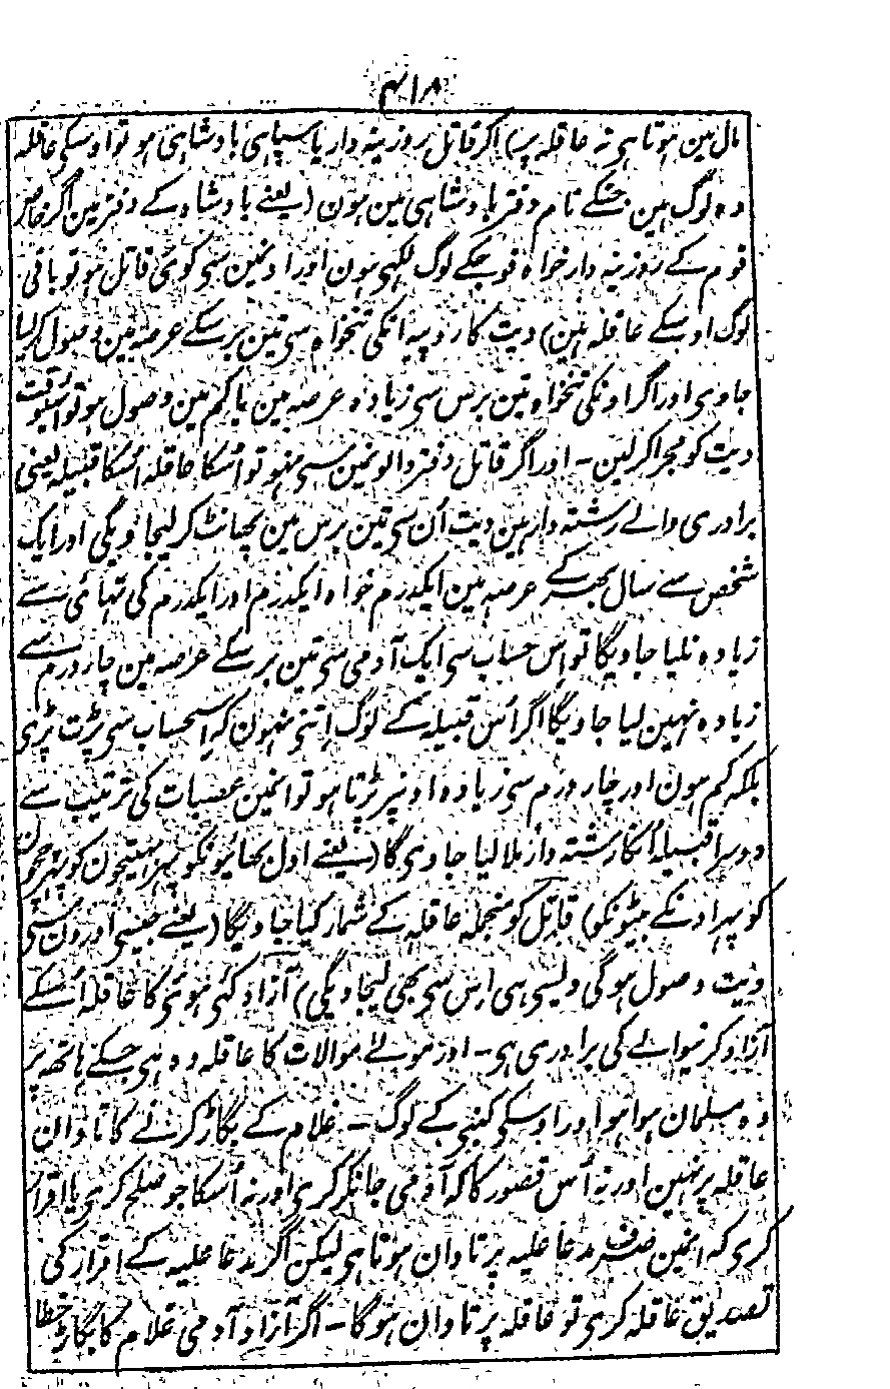 ۴۱۸
مال مین ہوتا ہی نہ عاقلہ پر) اگر قاتل روزینہ دار یا سپاہی بادشاہی ہو تو اوسکی عاقلہ
وہ لوگ ہین جنکے نام دفتر بادشاہی مین ہون (یعنے بادشاہ کے دفتر مین اگر خاص
قوم کے روزینہ دار خواہ فوجکے لوگ لکہی ہون اور اونمین سی کوئی قاتل ہو تو باقی
لوگ اوسکے عاقلہ ہین) دیت کا روپیہ انکی تنخواہ سی تین برسکے عرصہ مین وصول کیا
جاوی اور اگر اونکی تنخواہ تین برس سی زیادہ عرصہ مین یا کم مین وصول ہو تو اسیوقت
دیت کو مجرا کر لین - اور اگر قاتل دفتر والونمین سی نہو تو اُسکا عاقلہ اُسکا قبیلہ یعنی
برادری والے رشتہ دار ہین دیت اُن سی تین برس مین چھانٹ کر لیجاویگی اور ایک
شخص سے سال بھر کے عرصہ مین ایکدرم خواہ ایکدرم اور ایکدرم کی تہائی سے
زیادہ نلیا جاویگا تو اس حساب سی ایک آدمی سی تین برسکے عرصہ مین چار درم سے
زیادہ نہین لیا جاویگا اگر اُس قبیلہ کے لوگ اتنی نہون کہ اسحساب سی پڑت پڑی
بلکہ کم ہون اور چار درم سی زیادہ اونپر پڑتا ہو تو انمین عصبات کی ترتیب سے
دوسرا قبیلہ اُنکا رشتہ دار ملا لیا جاوی گا (یعنے اول بھائیونکو پہر بہتیجون کو پہر چچون
کو پہر اونکے بیٹونکو) قاتل کو منجملہ عاقلہ کے شمار کیا جاویگا (یعنے جیسی اورون سی
دیت وصول ہوگی ویسی ہی اس سی بھی لیجاویگی) آزاد کئی ہوئی کا عاقلہ اُسکے
آزاد کرنیوالے کی برادری ہی - اور مولے موالات کا عاقلہ وہ ہی جسکے ہاتھ پر
وہ مسلمان ہوا ہو اور اوسکی کنبی کے لوگ - غلام کے بگاڑ کرنے کا تاوان
عاقلہ پر نہین اور نہ اُس قصور کا کہ آدمی جانکر کری اور نہ اُسکا جو صلح کری یا اقرار
کری کہ انمین صرف مدعا علیہ پر تاوان ہوتا ہی لیکن اگر مدعا علیہ کے اقرار کی
تصدیق عاقلہ کری تو عاقلہ پر تاوان ہوگا - اگر آزاد آدمی غلام کا بگاڑ خطا